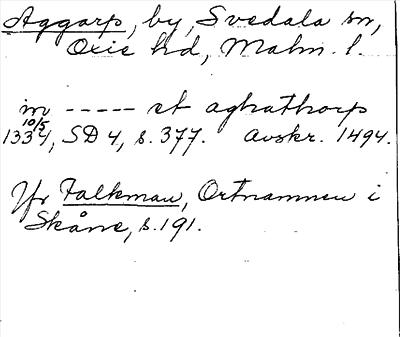 Aggarp, by, Svedala sn,
Oxie hd, Malm. l.
in ----- et aghathorp
10/5
1334, SD 4, s. 377. Avskr. 1494.
Jfr Falkman, Ortnamnen i
Skåne, s. 191.